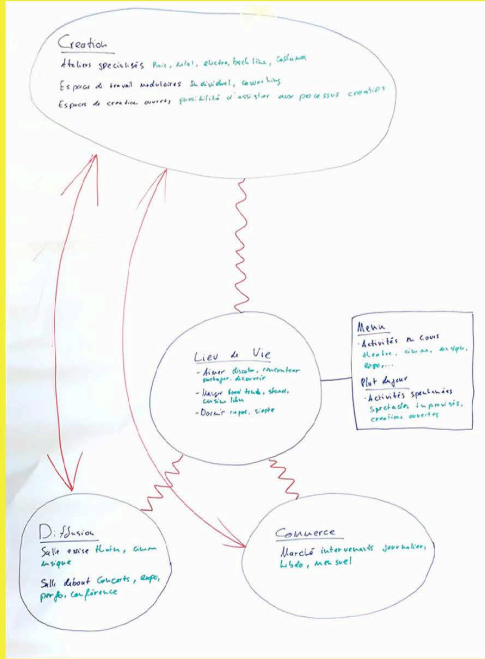 Creation
Ateliers specialisés Bois, metal, electro, back line, costumes
Espaces de travail modulaires Individuel, coworking
Espaces de creation ouverts, possibilité d'assister aux processus creatifs
Lieu de Vie
- Aimer discuter, rencontrer
partager, découvrir
- Manger food truck, stand,
cuisine libre
- Dormir repos, sieste
Menu
- Activités en cours
theatre, cinema, musique,
expo, ...
Plat du jour
- Activités spontanées
Spectacles improvisés,
creations ouvertes
Diffusion
Salle assise theatre, cinema
musique
Salle debout Concerts, expo,
perfo, conférence
Commerce
Marché intervenants journalier,
hebdo, mensuel